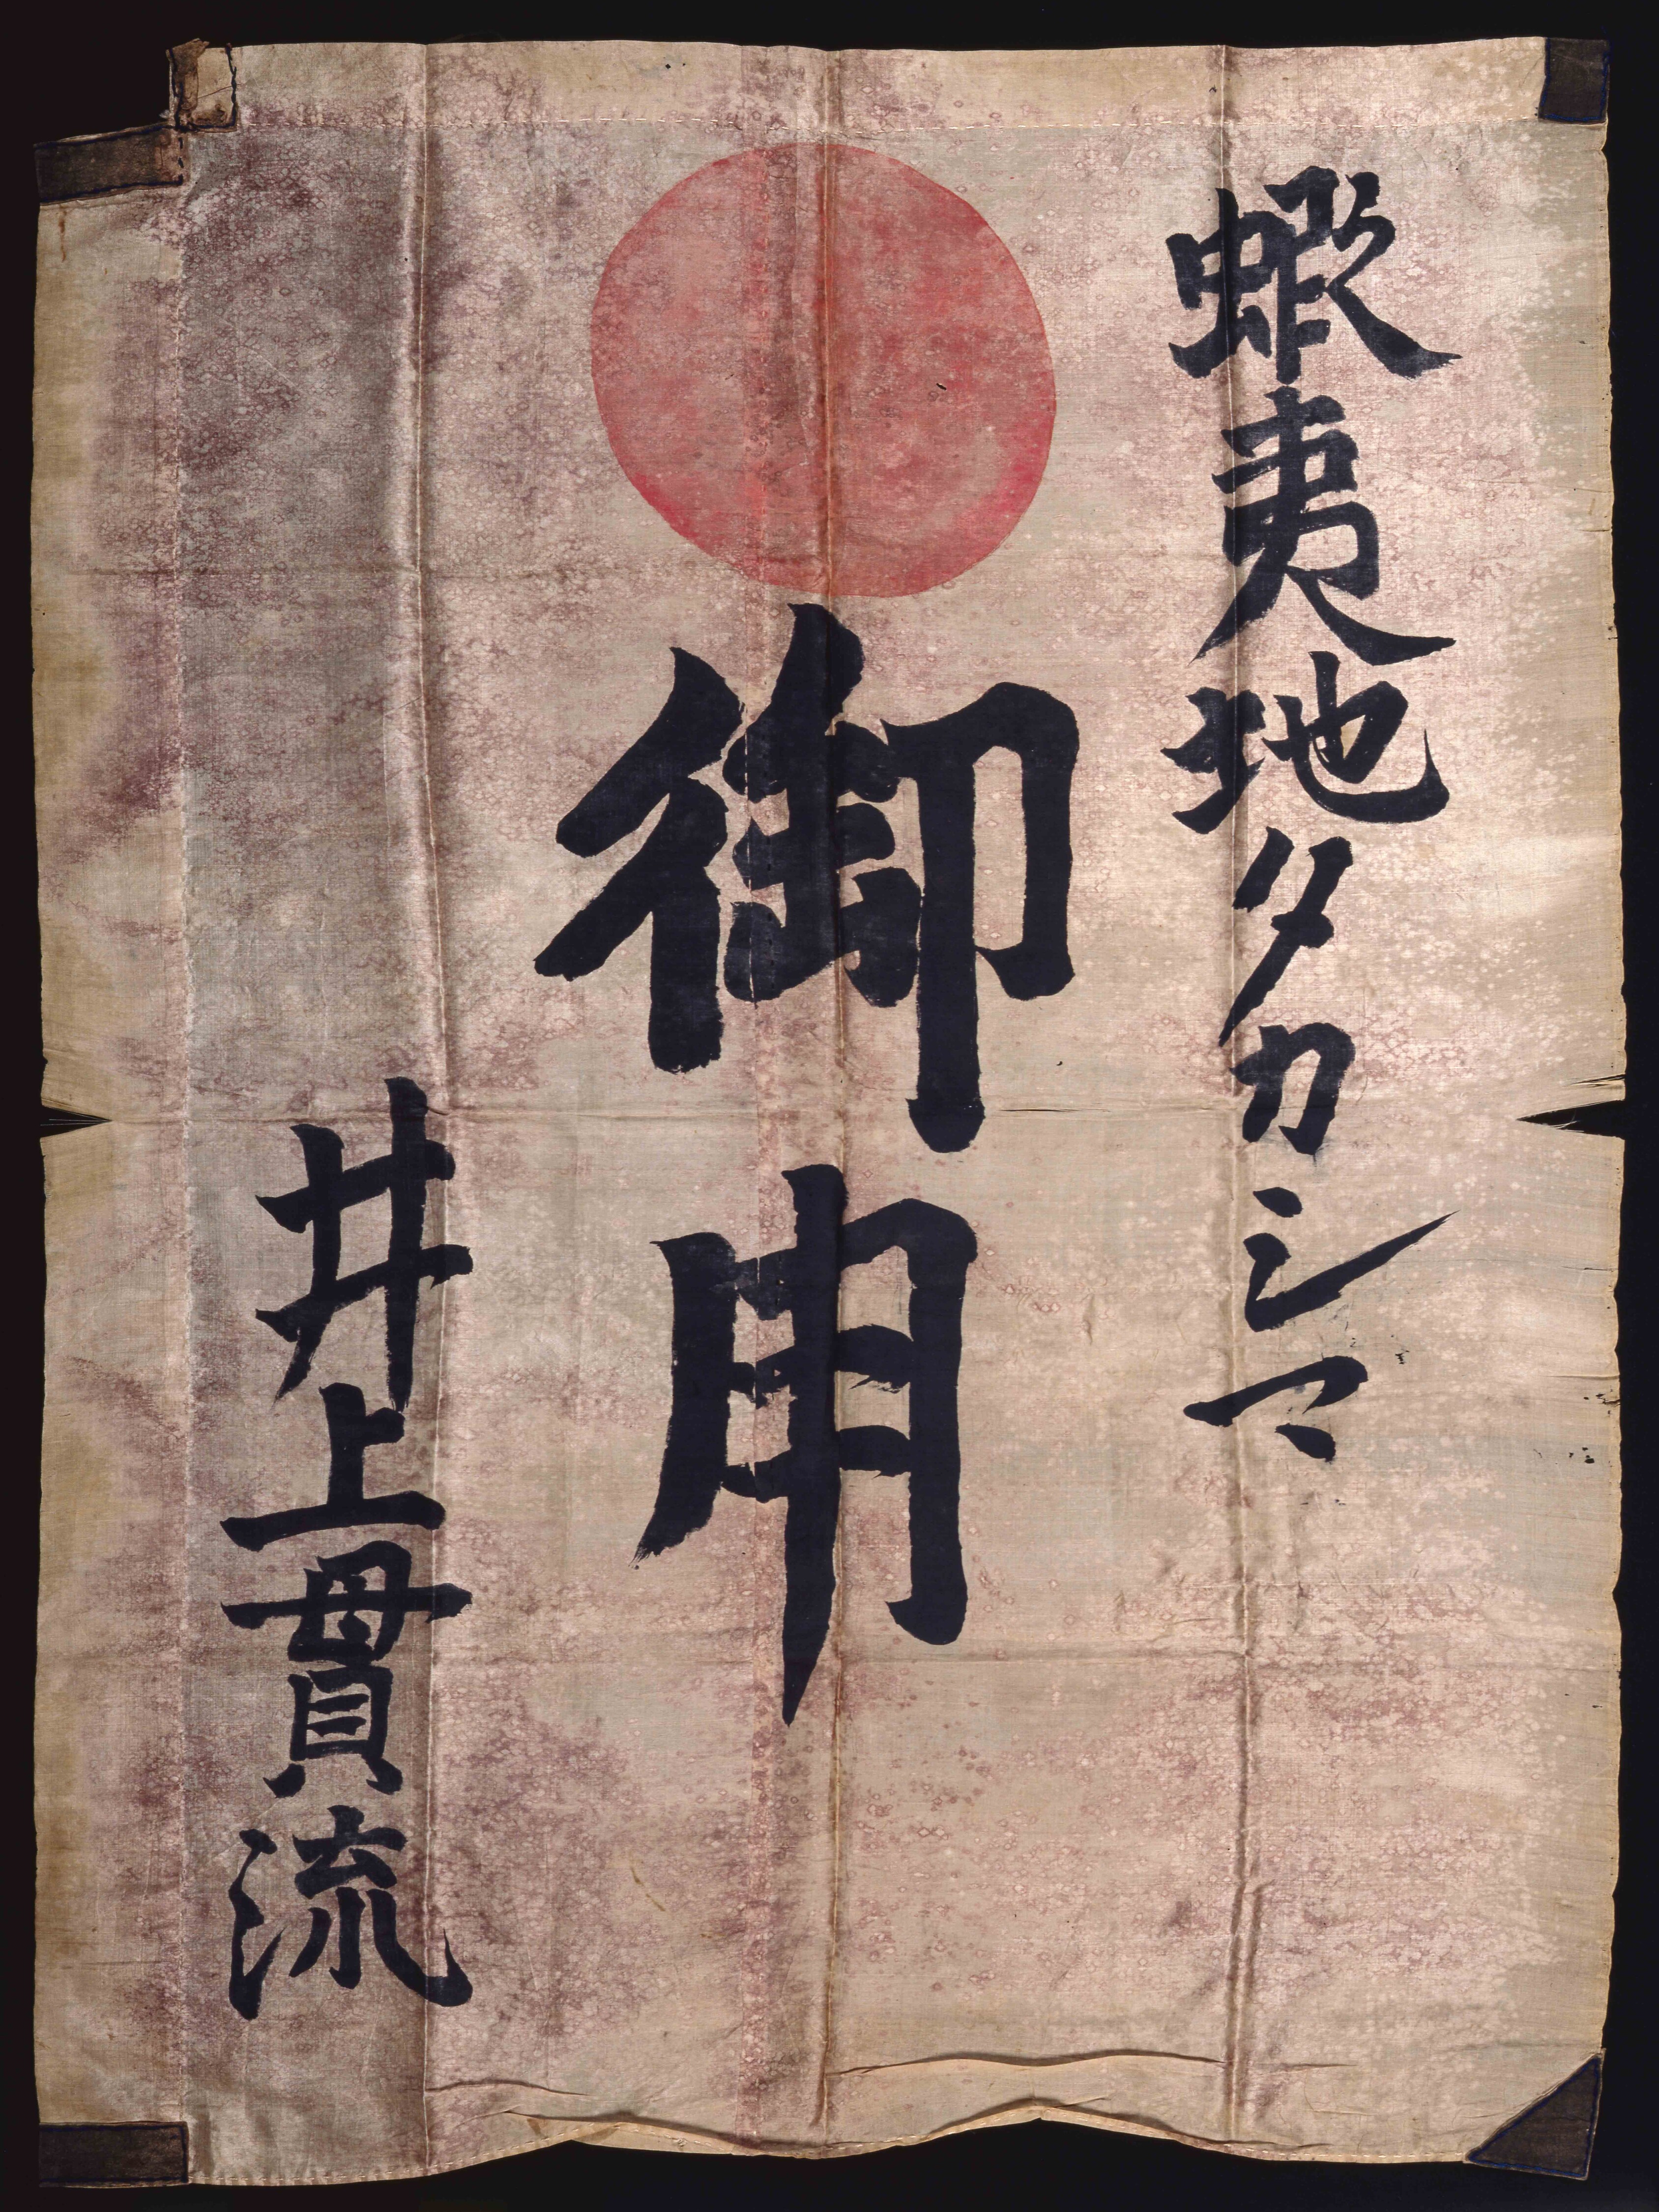 蝦夷地タカシマ
御用
井上貫流